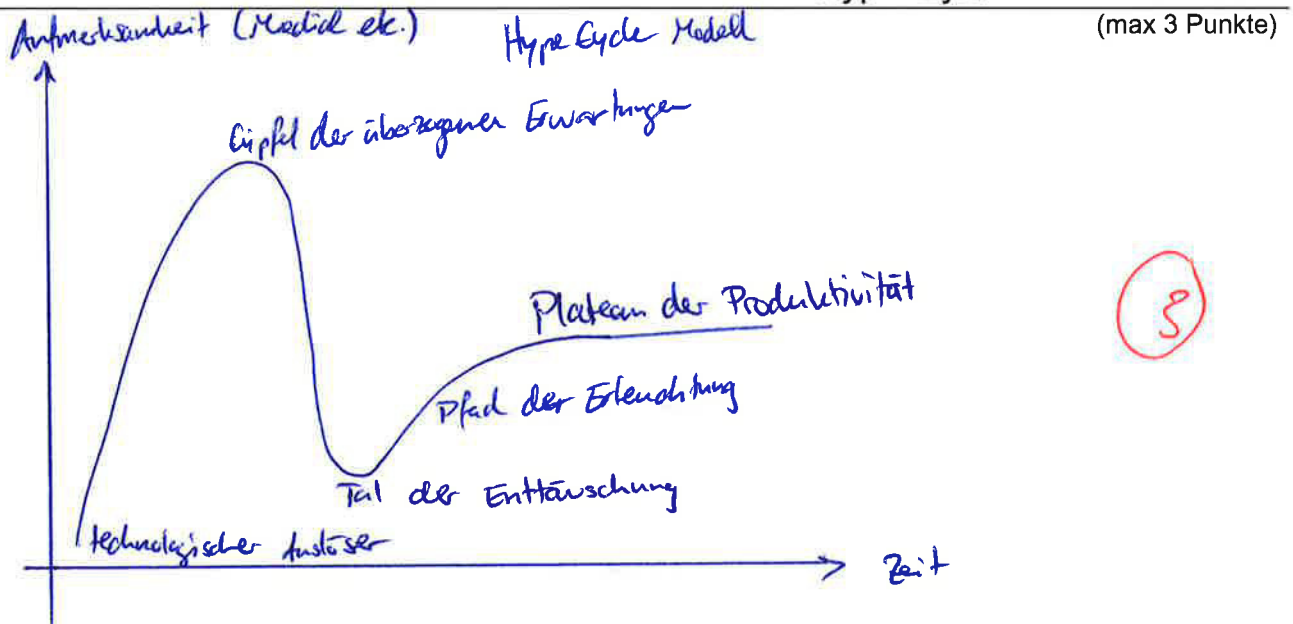 (max 3 Punkte)
Aufmerksamkeit (Medial etc.)
Hype Cycle Modell
Gipfel der überzogenen Erwartungen
Plateau der Produktivität
3
Pfad der Erleuchtung
Tal der Enttäuschung
technologischer Auslöser
Zeit